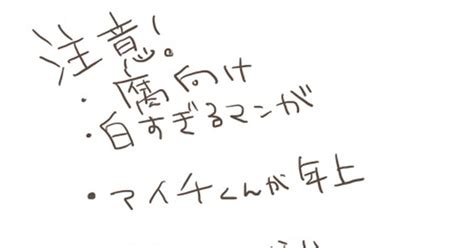 注意!
・腐向け
・白すぎるマンガ
・アイチくんが年上